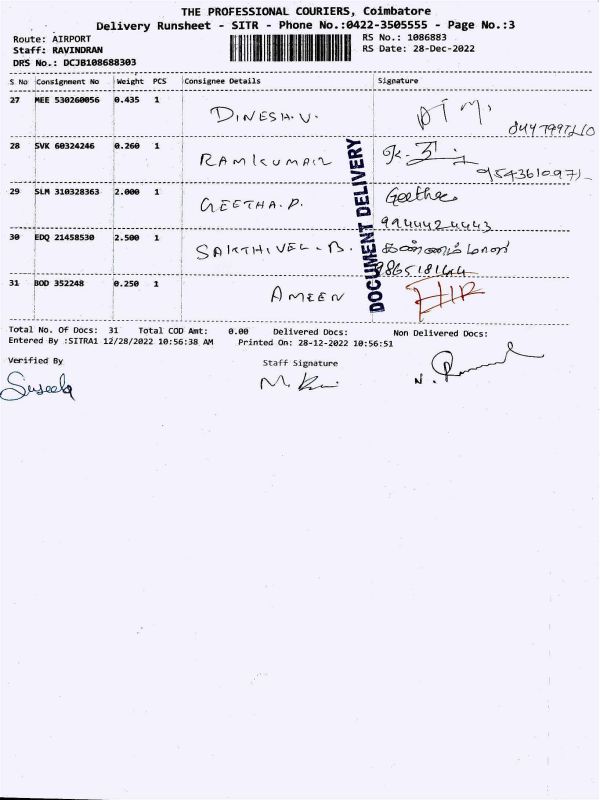 THE PROFESSIONAL COURIERS, Coimbatore
Delivery Runsheet - SITR - Phone No.:0422-3505555 - Page No.:3
Route: AIRPORT
RS No.: 1086883
Staff: RAVINDRAN
RS Date: 28-Dec-2022
DRS No.: DCJB108688303
S No Consignment No Weight PCS Consignee Details Signature
27 MEE 530260056 0.435 1 DINESH.V.
28 SVK 60324246 0.260 1 RAMKUMAR
29 SLM 310328363 2.000 1 GEETHA.P. Geetha
9944424443
30 EDQ 21458530 2.500 1 SAKTHIVEL.B.
31 BOD 352248 0.250 1 AMEEN
DOCUMENT DELIVERY
Total No. Of Docs: 31 Total COD Amt: 0.00 Delivered Docs: Non Delivered Docs:
Entered By :SITRA1 12/28/2022 10:56:38 AM Printed On: 28-12-2022 10:56:51
Verified By Staff Signature
Suseela